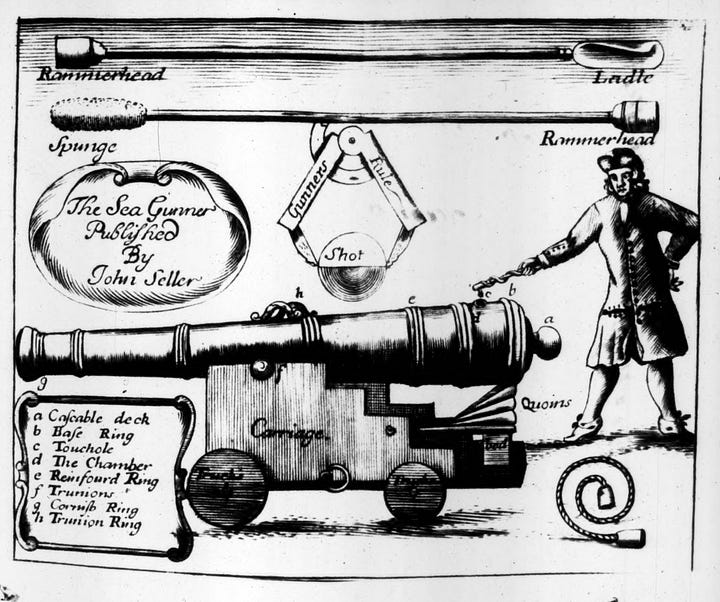 Rammerhead
Ladle
Spunge
Rammerhead
Gunners
Rule
Shot
The Sea Gunner
Publiſhed
By
John Seller
h
e
c
b
a
f
g
Quoins
Carriage.
a Caſcable deck
b Baſe Ring
c Touchole
d The Chamber
e Reinfourd Ring
f Trunions
g Corniſh Ring
h Trunion Ring